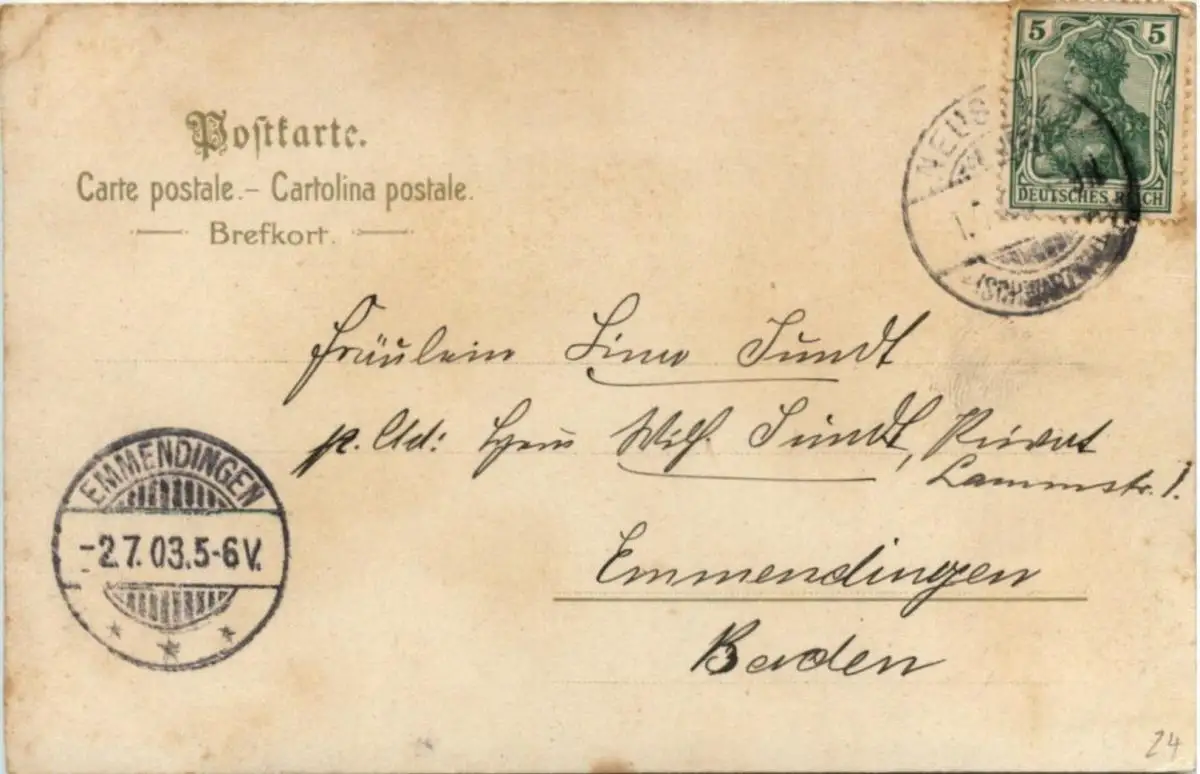 Postkarte.
Carte postale. – Cartolina postale.
Brefkort.
5 5
DEUTSCHES REICH
NEUS
1.7
(SCHWARZW
Fräulein Lina Sundt
p. Ad: Herrn Wilh. Sundt, Privat
Lammstr. 1.
Emmendingen
Baden
EMMENDINGEN
-2.7.03.5-6V.
24